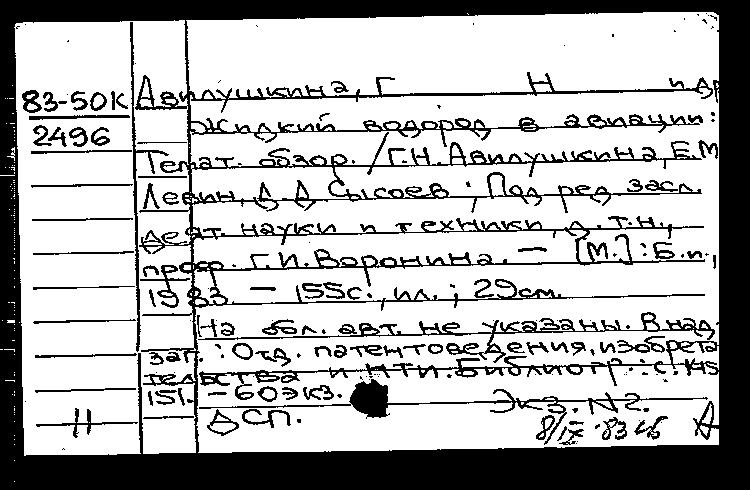 83-50К Авилушкина, Г Н и др
2496 Жидкий водород в авиации:
Темат. обзор. / Г.Н. Авилушкина, Е.М
Левин, Д Д Сысоев ; Под ред засл.
деят. науки и техники, д.т.н.,
проф. Г.И. Воронина. — [М.] : Б.и.,
1983. — 155с., ил. ; 29см.
На обл. авт. не указаны. В над-
заг. : Отд. патентоведения, изобрета
тельства и НТИ. Библиогр.: с. 145
151. — 60экз. Экз. N2.
11 ДСП. 8/IX-83